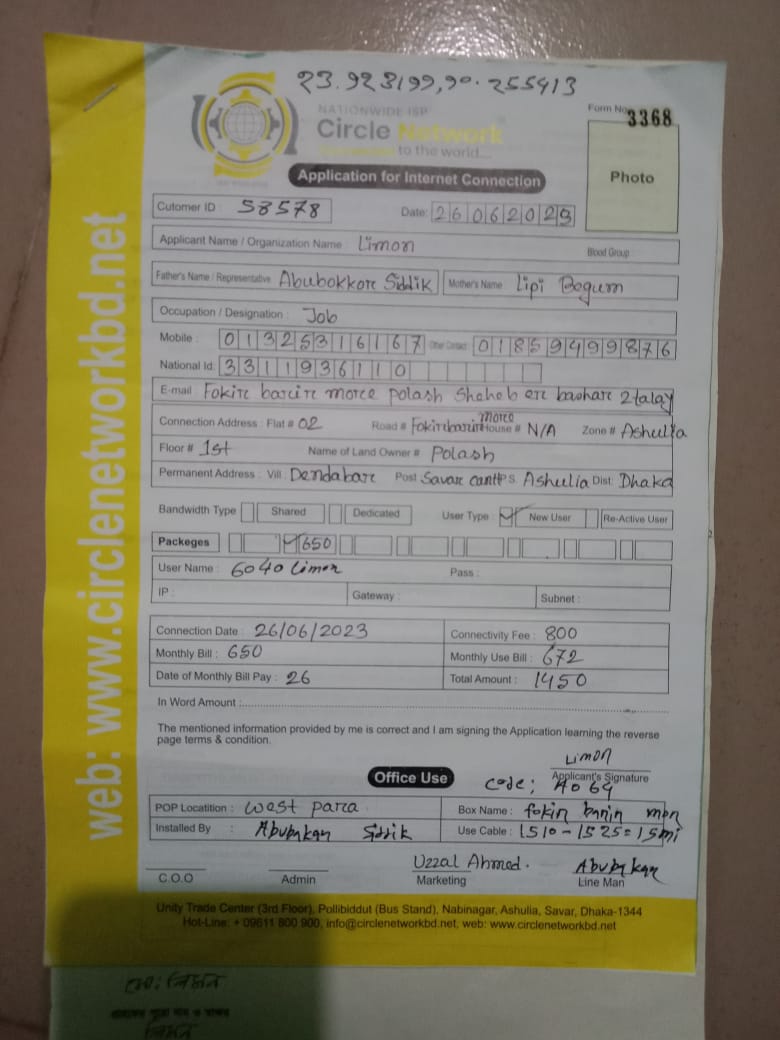 23.923199,90.255413
NATIONWIDE ISP
Circle Network
to the world...
Form No 3368
Application for Internet Connection
Photo
Cutomer ID : 58578
Date: 26062023
Applicant Name / Organization Name : Limon
Blood Group
Father's Name / Representative Abubokkore Siddik Mother's Name Lipi Begum
Occupation / Designation : Job
Mobile : 01325316167 Other Contact 01859499876
National Id: 3311936110
E-mail Fokire barire more polash Sheheb ere bashare 2 talay
Connection Address : Flat # 02 Road # Fokirebarire more House # N/A Zone # Ashulia
Floor # 1st Name of Land Owner # Polash
Permanent Address : Vill Dendabare Post Savar cantt P.S. Ashulia Dist: Dhaka
Bandwidth Type Shared Dedicated User Type : New User Re-Active User
Packeges 650
User Name : 6040 Limon Pass :
IP : Gateway : Subnet :
Connection Date : 26/06/2023 Connectivity Fee : 800
Monthly Bill : 650 Monthly Use Bill : 672
Date of Monthly Bill Pay : 26 Total Amount : 1450
In Word Amount :
The mentioned information provided by me is correct and I am signing the Application learning the reverse
page terms & condition.
Limon
Applicant's Signature
Office Use
Code; A064
POP Locatition : West para Box Name : fokir barir mor
Installed By : Abubakar Siddik Use Cable : 1510-1525=15mi
C.O.O
Admin
Uzzal Ahmed.
Marketing
Abubakar
Line Man
Unity Trade Center (3rd Floor), Pollibiddut (Bus Stand), Nabinagar, Ashulia, Savar, Dhaka-1344
Hot-Line: + 09611 800 900, info@circlenetworkbd.net, web: www.circlenetworkbd.net
web: www.circlenetworkbd.net
মো: লিমন
গ্রাহকের পুরো নাম ও স্বাক্ষর
লিমন